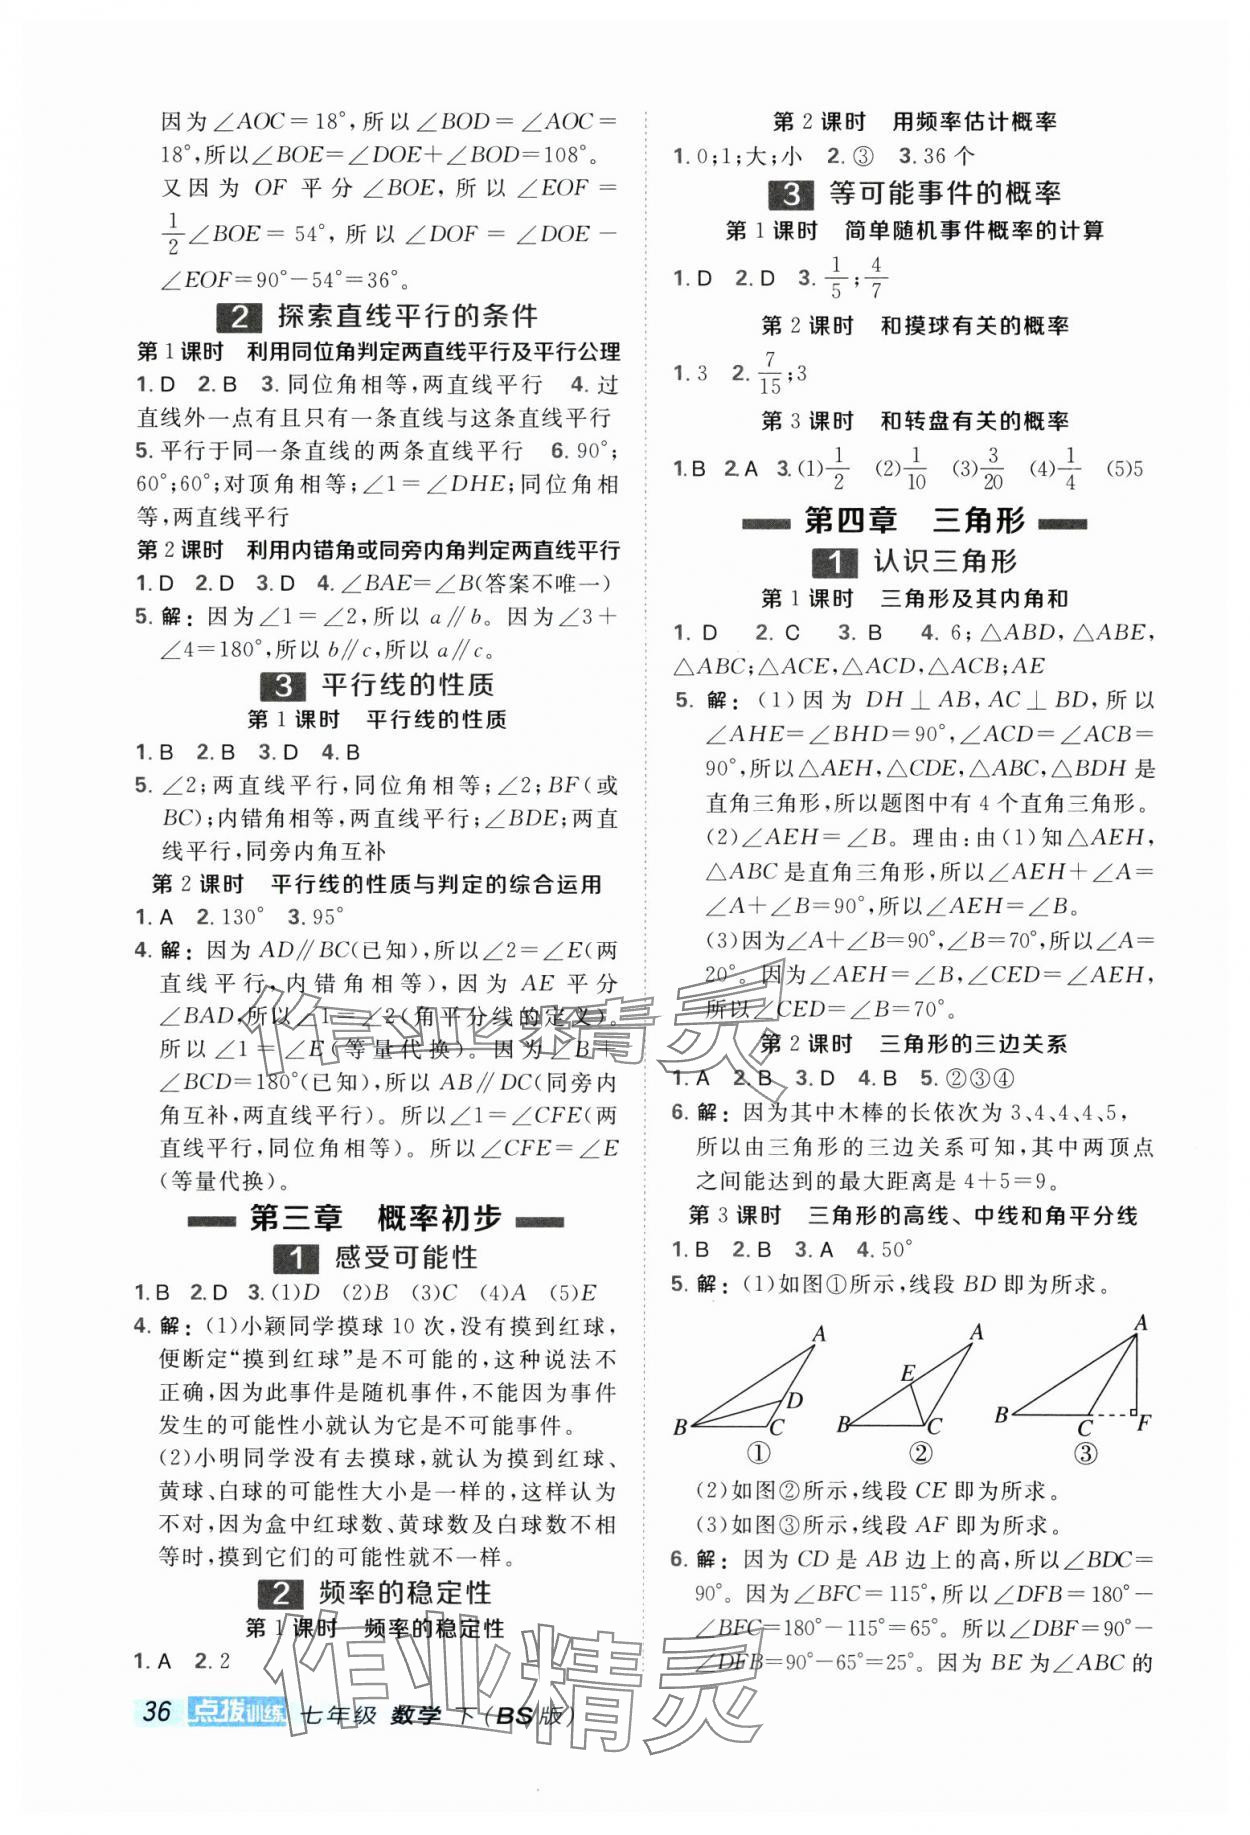 因为∠AOC=18°,所以∠BOD=∠AOC=
18°,所以∠BOE=∠DOE+∠BOD=108°。
又因为 OF 平分∠BOE,所以∠EOF=
1/2∠BOE=54°,所以∠DOF=∠DOE-
∠EOF=90°-54°=36°。
2 探索直线平行的条件
第1课时 利用同位角判定两直线平行及平行公理
1. D 2. B 3. 同位角相等,两直线平行 4. 过
直线外一点有且只有一条直线与这条直线平行
5. 平行于同一条直线的两条直线平行 6. 90°;
60°;60°;对顶角相等;∠1=∠DHE;同位角相
等,两直线平行
第2课时 利用内错角或同旁内角判定两直线平行
1. D 2. D 3. D 4. ∠BAE=∠B(答案不唯一)
5. 解:因为∠1=∠2,所以 a∥b。因为∠3+
∠4=180°,所以 b∥c,所以 a∥c。
3 平行线的性质
第1课时 平行线的性质
1. B 2. B 3. D 4. B
5. ∠2;两直线平行,同位角相等;∠2;BF(或
BC);内错角相等,两直线平行;∠BDE;两直
线平行,同旁内角互补
第2课时 平行线的性质与判定的综合运用
1. A 2. 130° 3. 95°
4. 解:因为 AD∥BC(已知),所以∠2=∠E(两
直线平行,内错角相等),因为 AE 平分
∠BAD,所以∠1=∠2(角平分线的定义)。
所以∠1=∠E(等量代换)。因为∠B+
∠BCD=180°(已知),所以 AB∥DC(同旁内
角互补,两直线平行)。所以∠1=∠CFE(两
直线平行,同位角相等)。所以∠CFE=∠E
(等量代换)。
第三章 概率初步
1 感受可能性
1. B 2. D 3. (1)D (2)B (3)C (4)A (5)E
4. 解:(1)小颖同学摸球 10 次,没有摸到红球,
便断定“摸到红球”是不可能的,这种说法不
正确,因为此事件是随机事件,不能因为事件
发生的可能性小就认为它是不可能事件。
(2)小明同学没有去摸球,就认为摸到红球、
黄球、白球的可能性大小是一样的,这样认为
不对,因为盒中红球数、黄球数及白球数不相
等时,摸到它们的可能性就不一样。
2 频率的稳定性
第1课时 频率的稳定性
1. A 2. 2
第2课时 用频率估计概率
1. 0;1;大;小 2. ③ 3. 36 个
3 等可能事件的概率
第1课时 简单随机事件概率的计算
1. D 2. D 3. 1/5;4/7
第2课时 和摸球有关的概率
1. 3 2. 7/15;3
第3课时 和转盘有关的概率
1. B 2. A 3. (1)1/2 (2)1/10 (3)3/20 (4)1/4 (5)5
第四章 三角形
1 认识三角形
第1课时 三角形及其内角和
1. D 2. C 3. B 4. 6;△ABD,△ABE,
△ABC;△ACE,△ACD,△ACB;AE
5. 解:(1)因为 DH⊥AB,AC⊥BD,所以
∠AHE=∠BHD=90°,∠ACD=∠ACB=
90°,所以△AEH,△CDE,△ABC,△BDH 是
直角三角形,所以题图中有 4 个直角三角形。
(2)∠AEH=∠B。理由:由(1)知△AEH,
△ABC 是直角三角形,所以∠AEH+∠A=
∠A+∠B=90°,所以∠AEH=∠B。
(3)因为∠A+∠B=90°,∠B=70°,所以∠A=
20°。因为∠AEH=∠B,∠CED=∠AEH,
所以∠CED=∠B=70°。
第2课时 三角形的三边关系
1. A 2. B 3. D 4. B 5. ②③④
6. 解:因为其中木棒的长依次为 3、4、4、4、5,
所以由三角形的三边关系可知,其中两顶点
之间能达到的最大距离是 4+5=9。
第3课时 三角形的高线、中线和角平分线
1. B 2. B 3. A 4. 50°
5. 解:(1)如图①所示,线段 BD 即为所求。
A
D
B
C
①
A
E
B
C
②
A
B
C
F
③
(2)如图②所示,线段 CE 即为所求。
(3)如图③所示,线段 AF 即为所求。
6. 解:因为 CD 是 AB 边上的高,所以∠BDC=
90°。因为∠BFC=115°,所以∠DFB=180°-
∠BFC=180°-115°=65°。所以∠DBF=90°-
∠DFB=90°-65°=25°。因为 BE 为∠ABC 的
36 点拨训练 七年级 数学 下(BS版)
作业精灵
作业精灵